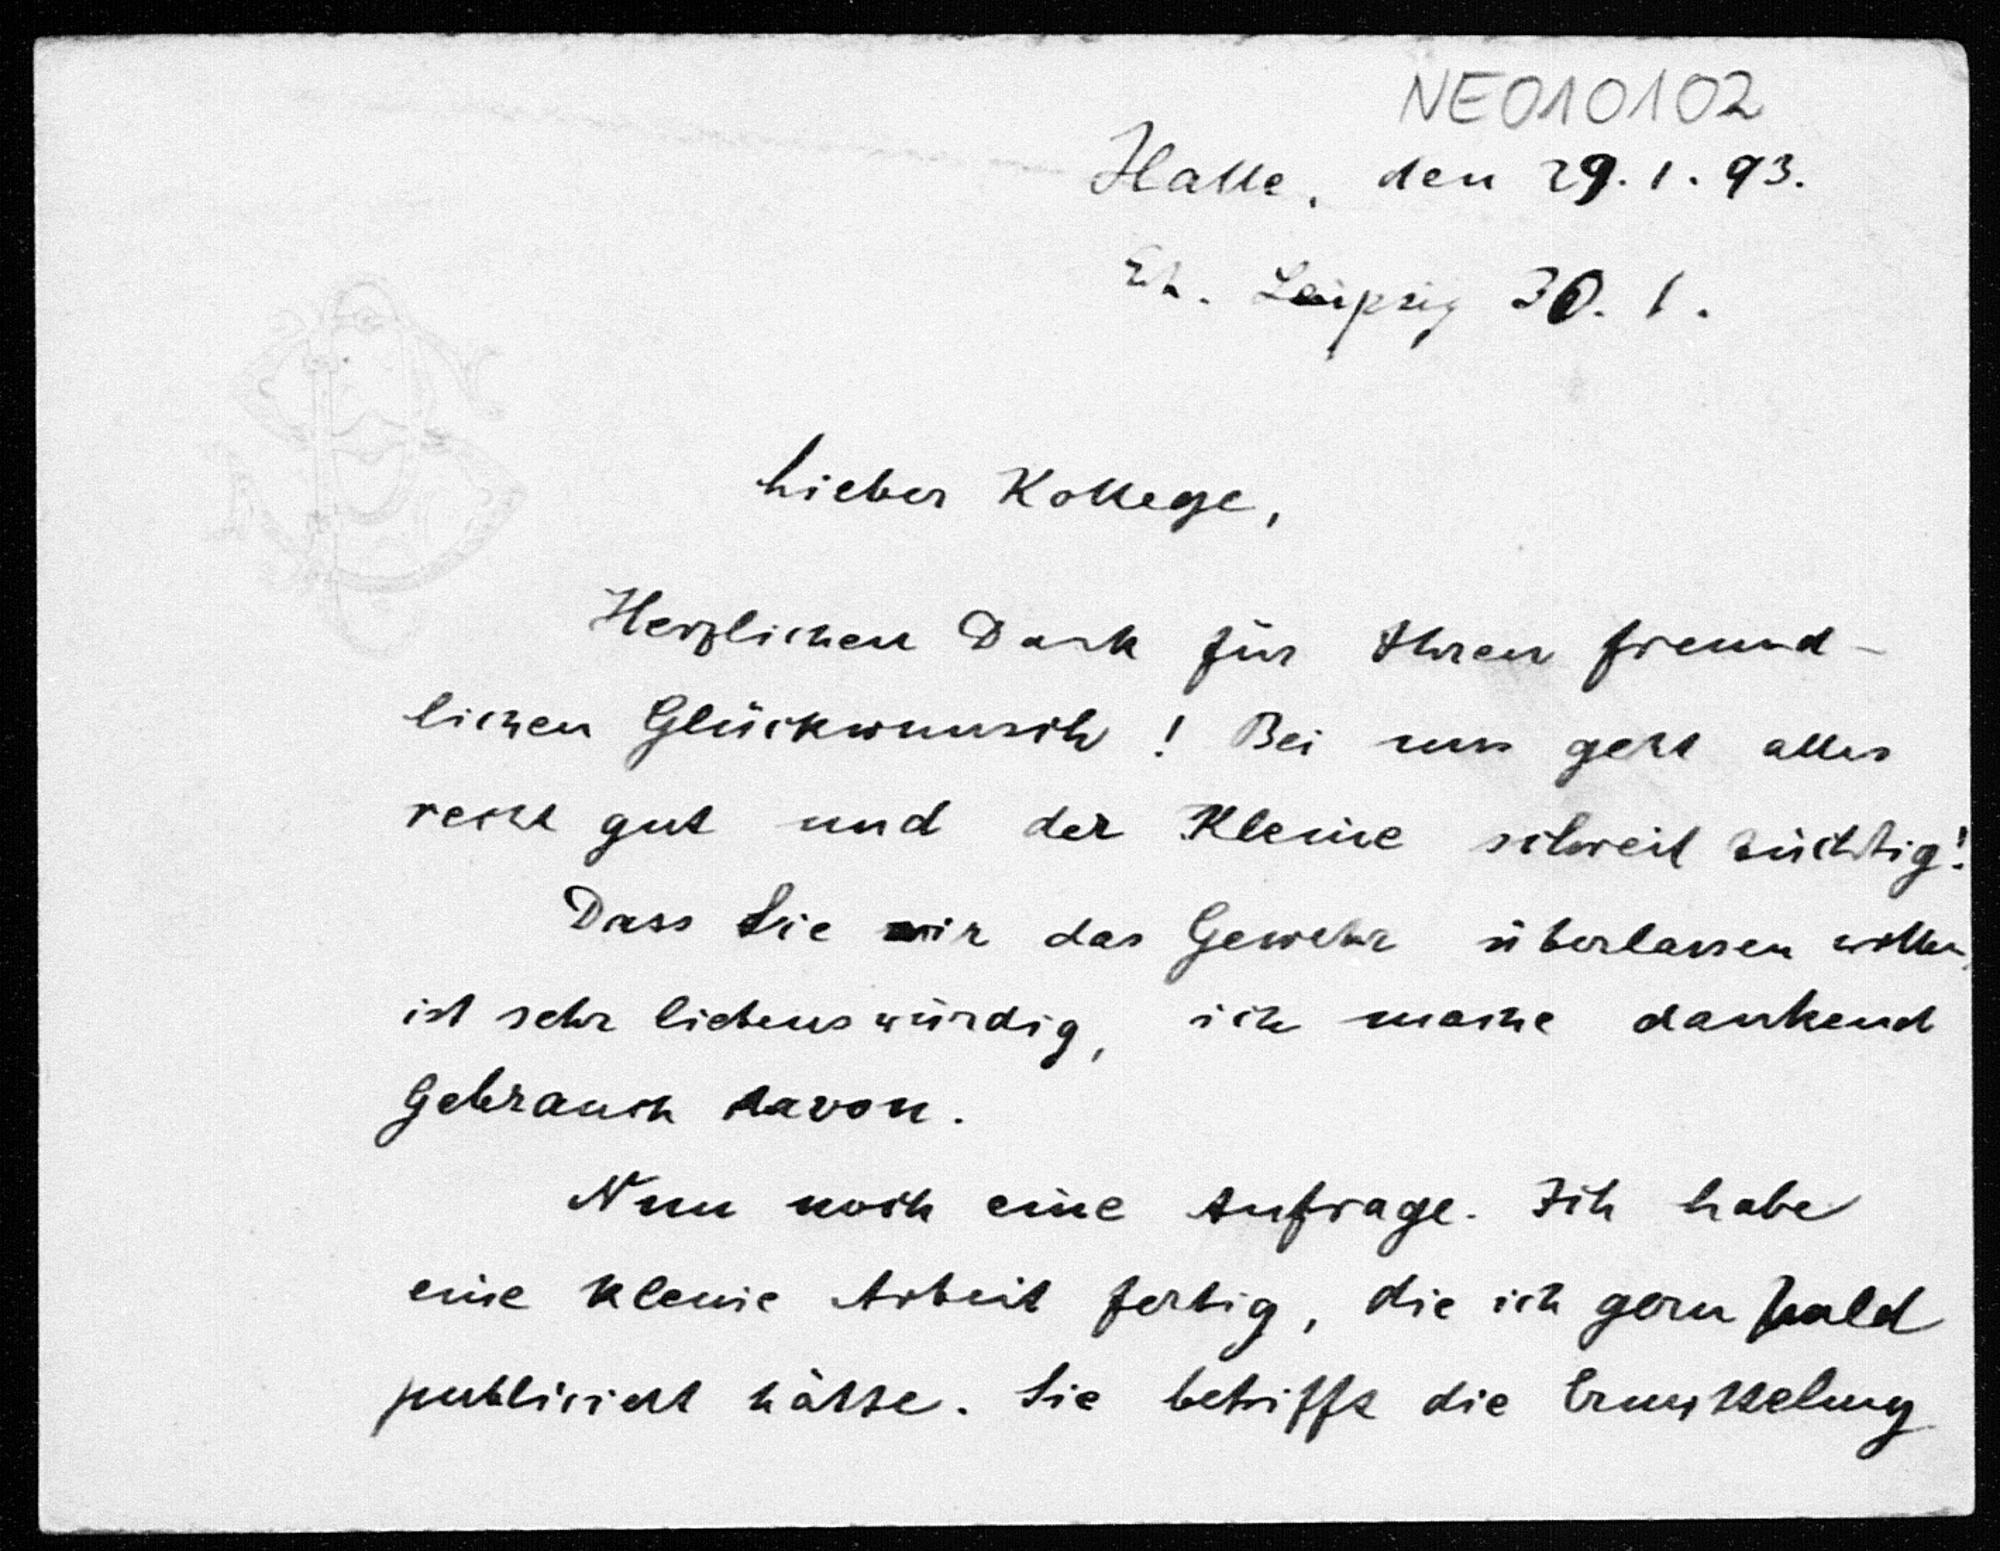 NE010102
Halle, den 29.1.93.
Eh. Leipzig 30.1.
Lieber Kollege,
Herzlichen Dank für Ihren freund-
lichen Glückwunsch! Bei uns geht alles
recht gut und der Kleine schreit tüchtig!
Dass Sie mir das Gewehr überlassen wollen,
ist sehr liebenswürdig, ich mache dankend
Gebrauch davon.
Nun noch eine Anfrage. Ich habe
eine kleine Arbeit fertig, die ich gern bald
publiciert hätte. Sie betrifft die Ermittelung